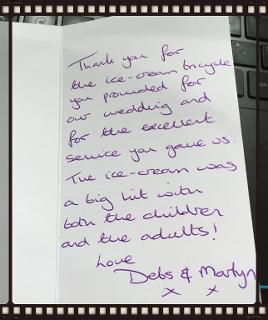 Thank you for
the ice-cream tricycle
you provided for
our wedding and
for the excellent
service you gave us.
The ice-cream was
a big hit with
both the children
and the adults!
Love
Debs & Martyn
x x